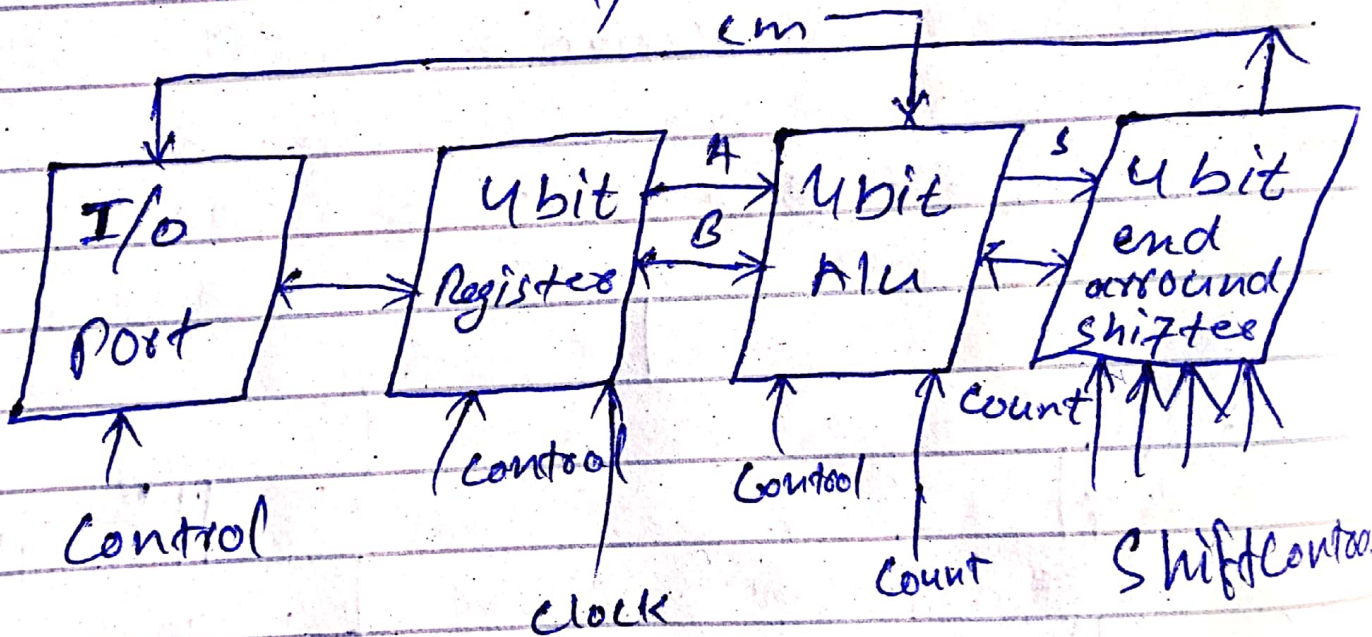 cm
I/O
Port
4 bit
Register
A
B
4 bit
Alu
S
4 bit
end
arround
shifter
Control
Control
Clock
Control
Count
Count
Shift Control